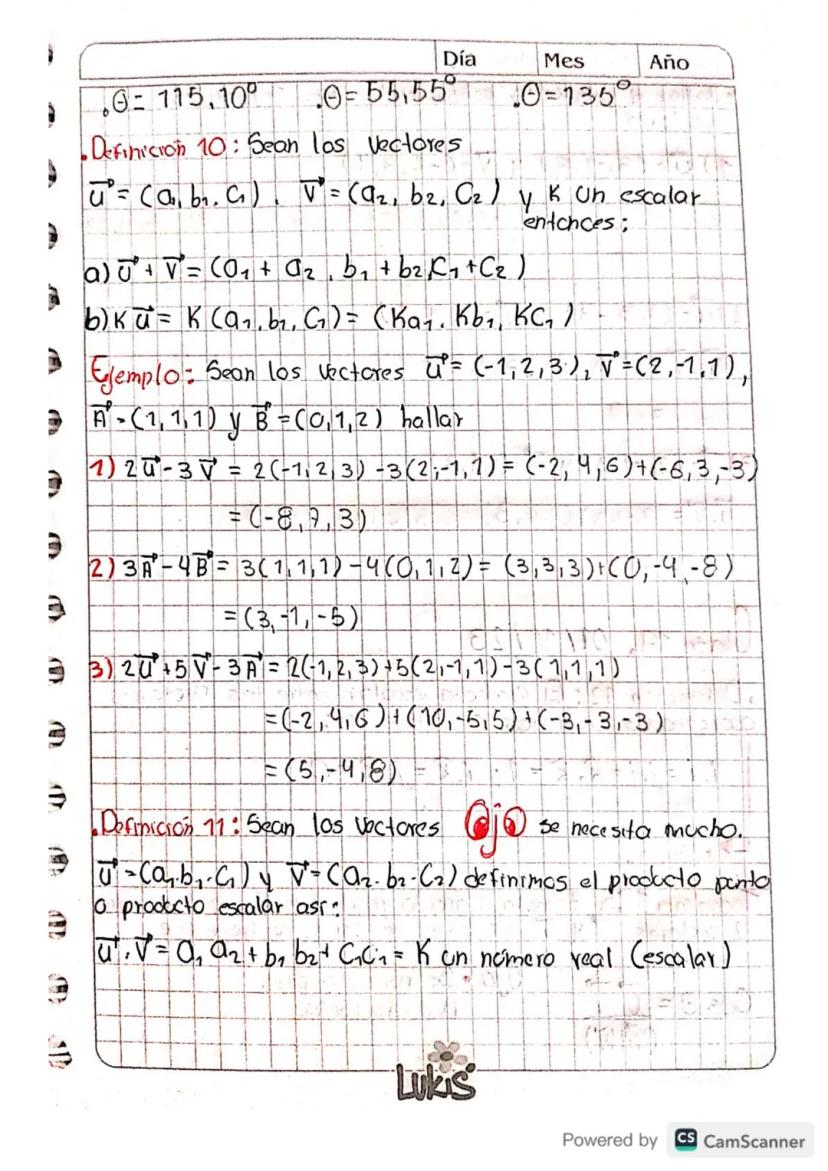 Día Mes Año
.θ= 115,10° .θ= 55,55° .θ=135°
.Definición 10: Sean los vectores
u⃗ = (a₁, b₁, C₁), v⃗ = (a₂, b₂, C₂) y K un escalar
entonces:
a) u⃗ + v⃗ = (a₁ + a₂, b₁ + b₂, C₁ + C₂)
b) K u⃗ = K (a₁, b₁, C₁) = (Ka₁, Kb₁, KC₁)
Ejemplo: Sean los vectores u⃗ = (-1, 2, 3), v⃗ = (2, -1, 1),
A⃗ = (1, 1, 1) y B⃗ = (0, 1, 2) hallar
1) 2u⃗ - 3v⃗ = 2(-1, 2, 3) - 3(2, -1, 1) = (-2, 4, 6) + (-6, 3, -3)
= (-8, 7, 3)
2) 3A⃗ - 4B⃗ = 3(1, 1, 1) - 4(0, 1, 2) = (3, 3, 3) + (0, -4, -8)
= (3, -1, -5)
3) 2u⃗ + 5v⃗ - 3A⃗ = 2(-1, 2, 3) + 5(2, -1, 1) - 3(1, 1, 1)
= (-2, 4, 6) + (10, -5, 5) + (-3, -3, -3)
= (5, -4, 8)
.Definición 11: Sean los vectores Ojo se necesita mucho.
u⃗ = (a₁, b₁, C₁) y v⃗ = (a₂, b₂, C₂) definimos el producto punto
o producto escalar así:
u⃗ . v⃗ = a₁ a₂ + b₁ b₂ + C₁C₁ = K un número real (escalar)
Lukis
Powered by CS CamScanner